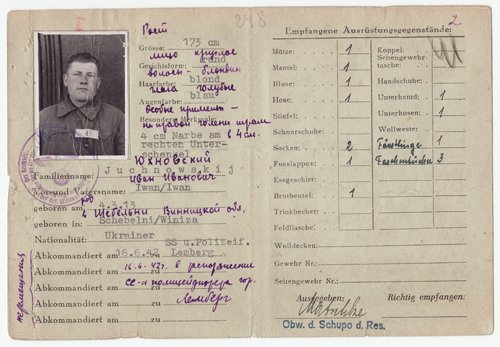 I
Рост
Grösse: 173 cm
лицо круглое
Gesichtsform: rund
волосы - блондин
Haarfarbe: blond
глаза голубые
Augenfarbe: blau
особые приметы -
Besondere Merkmale:
на правой голени шрам
4 cm Narbe am в 4 см.
rechten Unter-
schenkel
Юхновский
Familienname: Juchnowskij
Иван Иванович
Vor- und Vatersname: Iwan/Iwan
род
geboren am 4.3.13
в Щебельни Винницкой обл,
geboren in: Schebelni/Winiza
Nationalität: Ukrainer
SS u.Polizeif.
Abkommandiert am 16.6.42 zu Lemberg
Abkommandiert am 16.6.42г. zu в распоряжение
Abkommandiert am СС-и полицейфюрера zu гор.
Abkommandiert am zu Лемберг
Abkommandiert am zu
перемещения
2
Empfangene Ausrüstungsgegenstände:
Mütze: 1
Mantel: 1
Bluse: 1
Hose: 1
Stiefel:
Schnürschuhe:
Socken: 2
Fusslappen: 1
Essgeschirr:
Brotbeutel: 1
Trinkbecher:
Feldflasche:
Wolldecken:
Koppel:
Seitengewehr-
tasche:
Handschuhe:
Unterhemd: 1
Unterhosen: 1
Wollweste:
Fäustlinge 1
3
Gewehr Nr.:
Seitengewehr Nr.:
Ausgegeben:
Richtig empfangen:
Obw. d. Schupo d. Res.